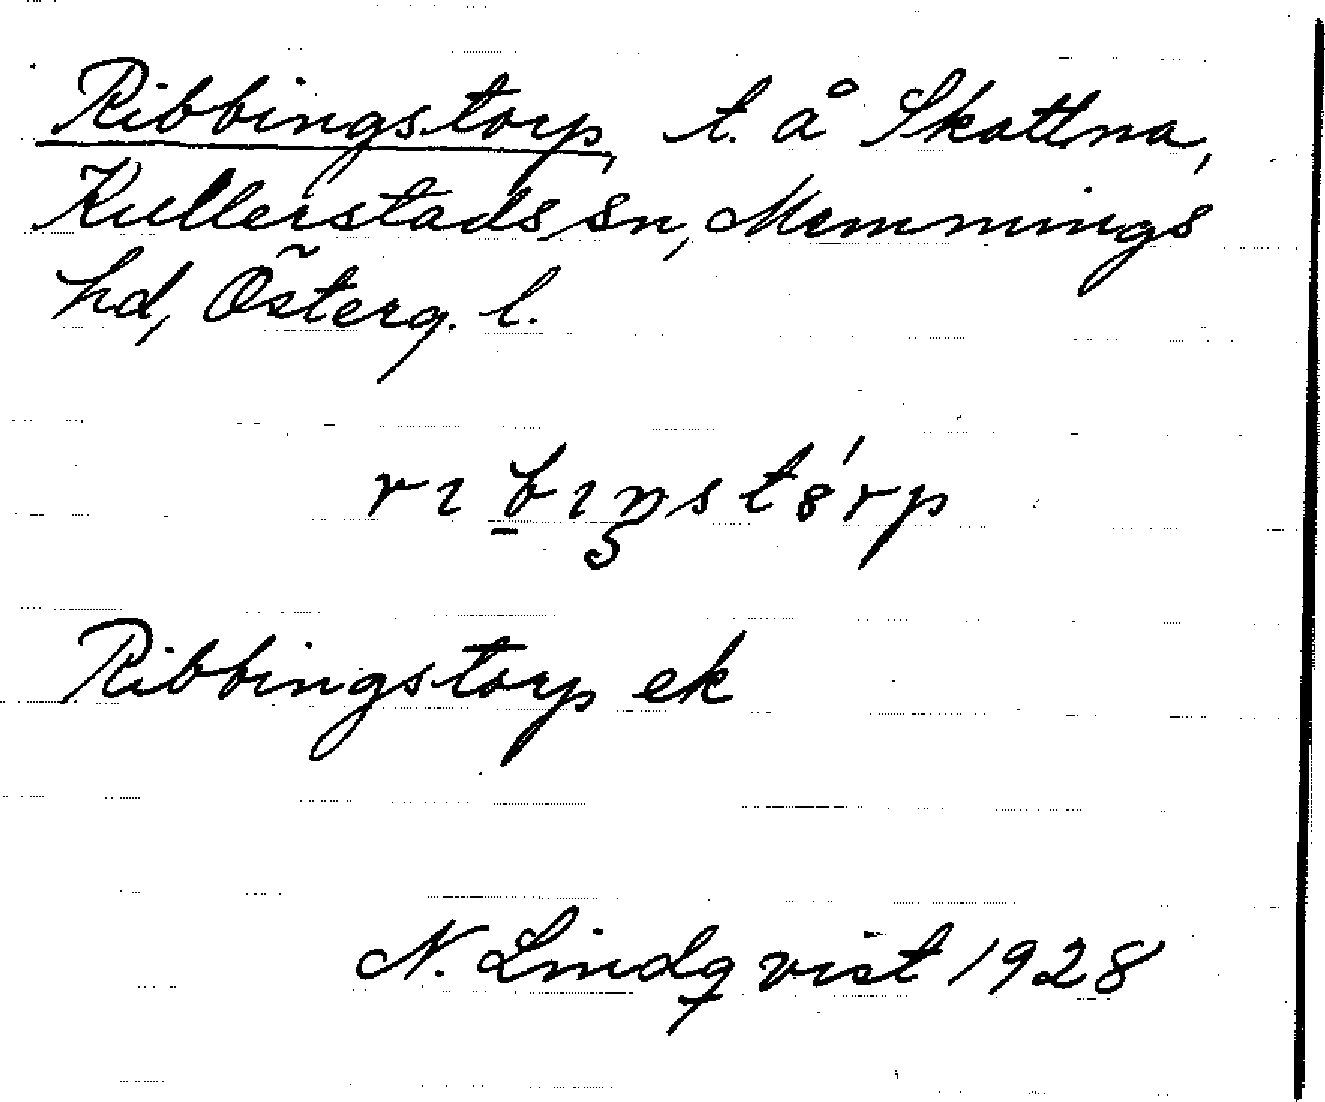 Ribbingstorp, t. å Skattna,
Kullerstads sn, Memmings
hd, Österg. l.
rɩb̠ɩŋstórp
Ribbingstorp ek
N. Lindqvist 1928